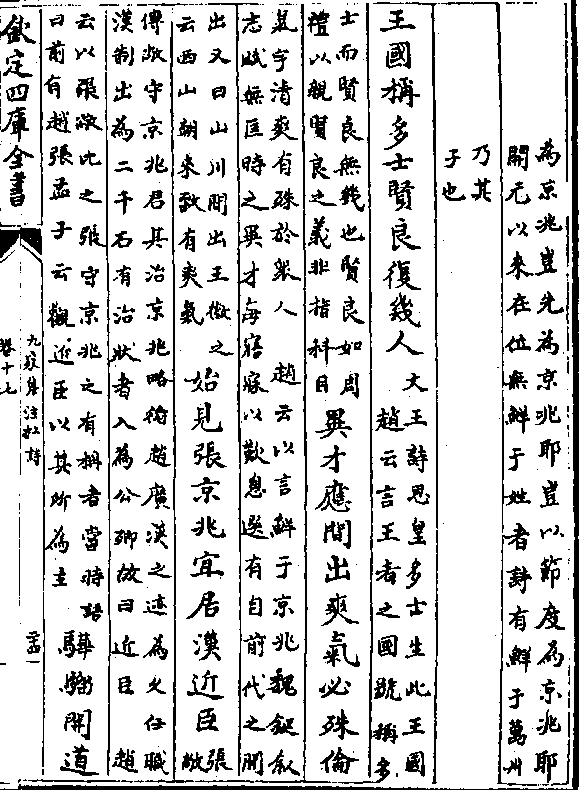 為京兆豈先為京兆耶豈以節度為京兆耶
開元以來在位無鮮于姓者詩有鮮于萬州
乃其
子也
王國稱多士賢良復幾人
文王詩思皇多士生此王國
趙云言王者之國號稱多
士而賢良無幾也賢良如周
禮以親賢良之義非指科目
異才應間出爽氣必殊倫
氣宇清爽有殊於衆人 趙云以言鮮于京兆魏鋋叙
志賦無匡時之異才每寤寐以歎息選有自前代之間
出又曰山川間出王徽之
云西山朝來致有爽氣
始見張京兆宜居漢近臣
張
敞
傳敞守京兆君其治京兆略循趙廣漢之迹為久任職
漢制出為二千石有治狀者入為公卿故曰近臣 趙
云以張敞比之張守京兆之有稱者當時語
曰前有趙張孟子云觀近臣以其所為主
驊騮開道
欽定四庫全書
九家集注杜詩
卷十七